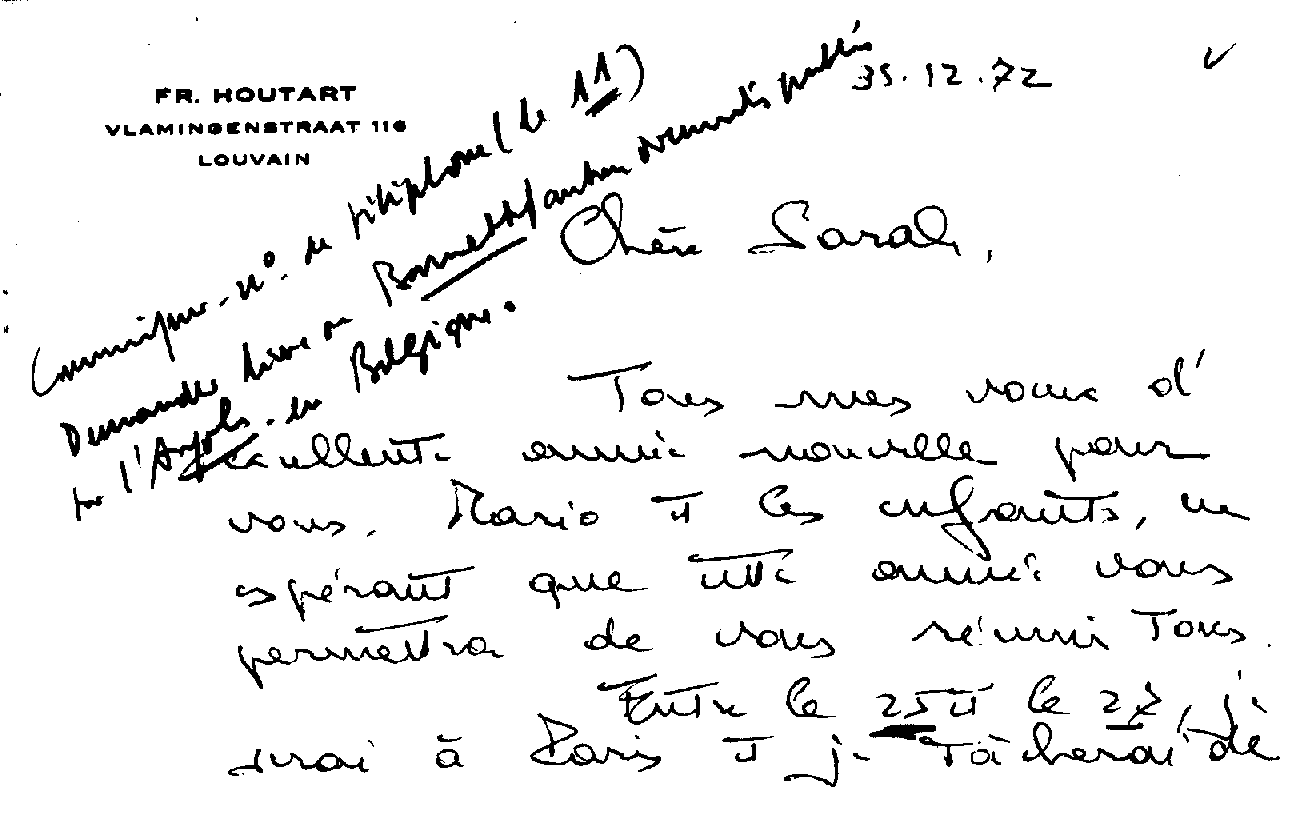 FR. HOUTART
VLAMINGENSTRAAT 116
LOUVAIN
35.12.72
Communiquer nº. de téléphone (le 11)
Demander livre de Barnett/autres documents publiés
sur l'Angola. en Belgique.
Chère Sarah,
Tous mes voeux d'
excellente année nouvelle pour
vous, Mario et les enfants, en
espérant que cette année vous
permettra de vous réunir tous.
Entre le 25 et le 27, je
serai à Paris et je tâcherai de